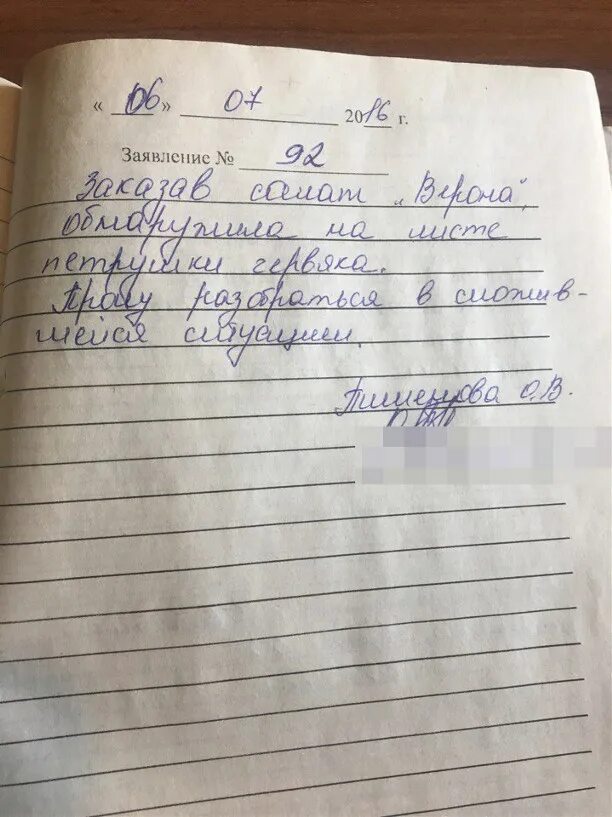 « 06 » 07 2016 г.
Заявление № 92
Заказав салат „Верона",
обнаружила на листе
петрушки червяка.
Прошу разобраться в сложив-
шейся ситуации.
О.В.